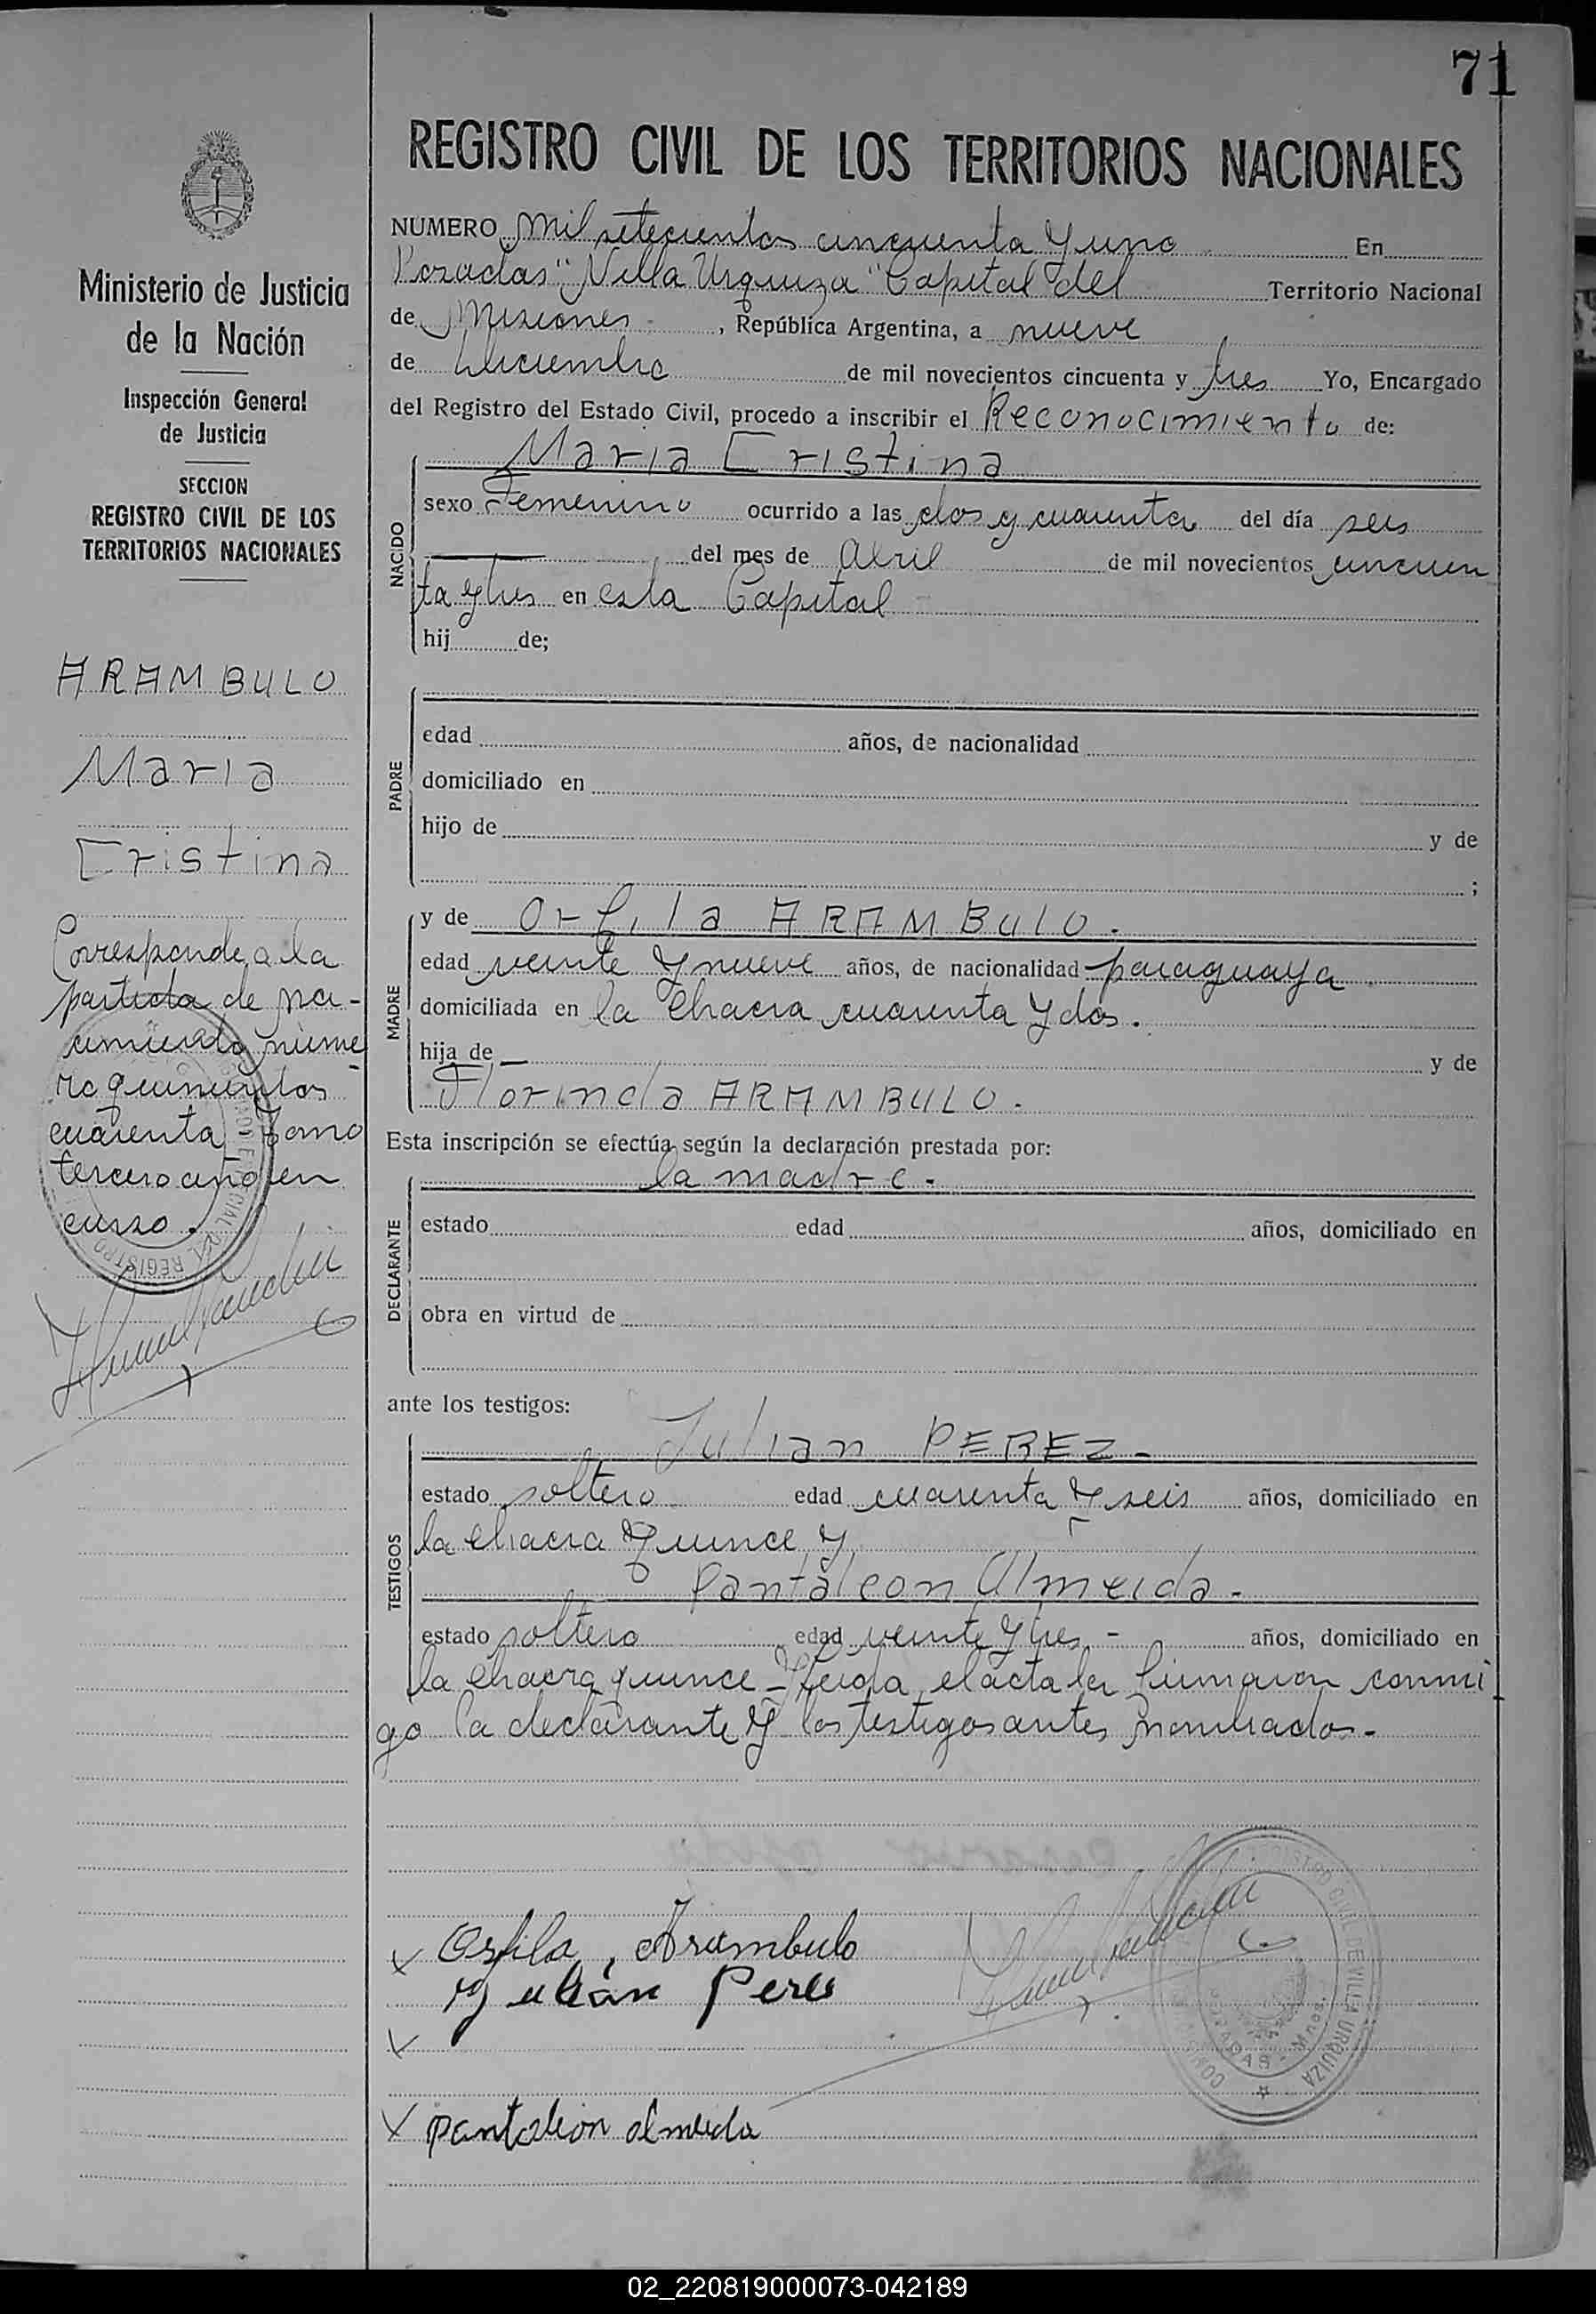 71
REGISTRO CIVIL DE LOS TERRITORIOS NACIONALES
Ministerio de Justicia
de la Nación
Inspección General
de Justicia
SECCION
REGISTRO CIVIL DE LOS
TERRITORIOS NACIONALES
ARAMBULO
Maria
Cristina
Corresponde a la
partida de na-
cimiento núme
ro quinientos
cuarenta - Tomo
tercero año en
curso.
NUMERO mil setecientos cincuenta y uno En
Posadas "Villa Urquiza" Capital del Territorio Nacional
de Misiones , República Argentina, a nueve
de Diciembre de mil novecientos cincuenta y tres Yo, Encargado
del Registro del Estado Civil, procedo a inscribir el Reconocimiento de:
NACIDO
Maria Cristina
sexo Femenino ocurrido a las dos y cuarenta del día seis
del mes de Abril de mil novecientos cincuen
ta y tres en esta Capital
hij de;
PADRE
edad años, de nacionalidad
domiciliado en
hijo de y de
;
MADRE
y de Orfila ARAMBULO.
edad veinte y nueve años, de nacionalidad paraguaya
domiciliada en la Chacra cuarenta y dos.
hija de — y de
Florinda ARAMBULO.
Esta inscripción se efectúa según la declaración prestada por:
DECLARANTE
la madre.
estado edad años, domiciliado en
obra en virtud de
ante los testigos:
TESTIGOS
Julian PEREZ-
estado soltero edad cuarenta y seis años, domiciliado en
la chacra quince y
Pantaleon Almeida.
estado soltero edad veinte y tres - años, domiciliado en
la Chacra quince - leida el acta la firmaron conmi
go la declarante y los testigos antes nombrados.
x Orfila Arambulo
Julián Peres
x
x pantaleon almeida
REGISTRO CIVIL DE VILLA URQUIZA
POSADAS - Mnes.
02_220819000073-042189